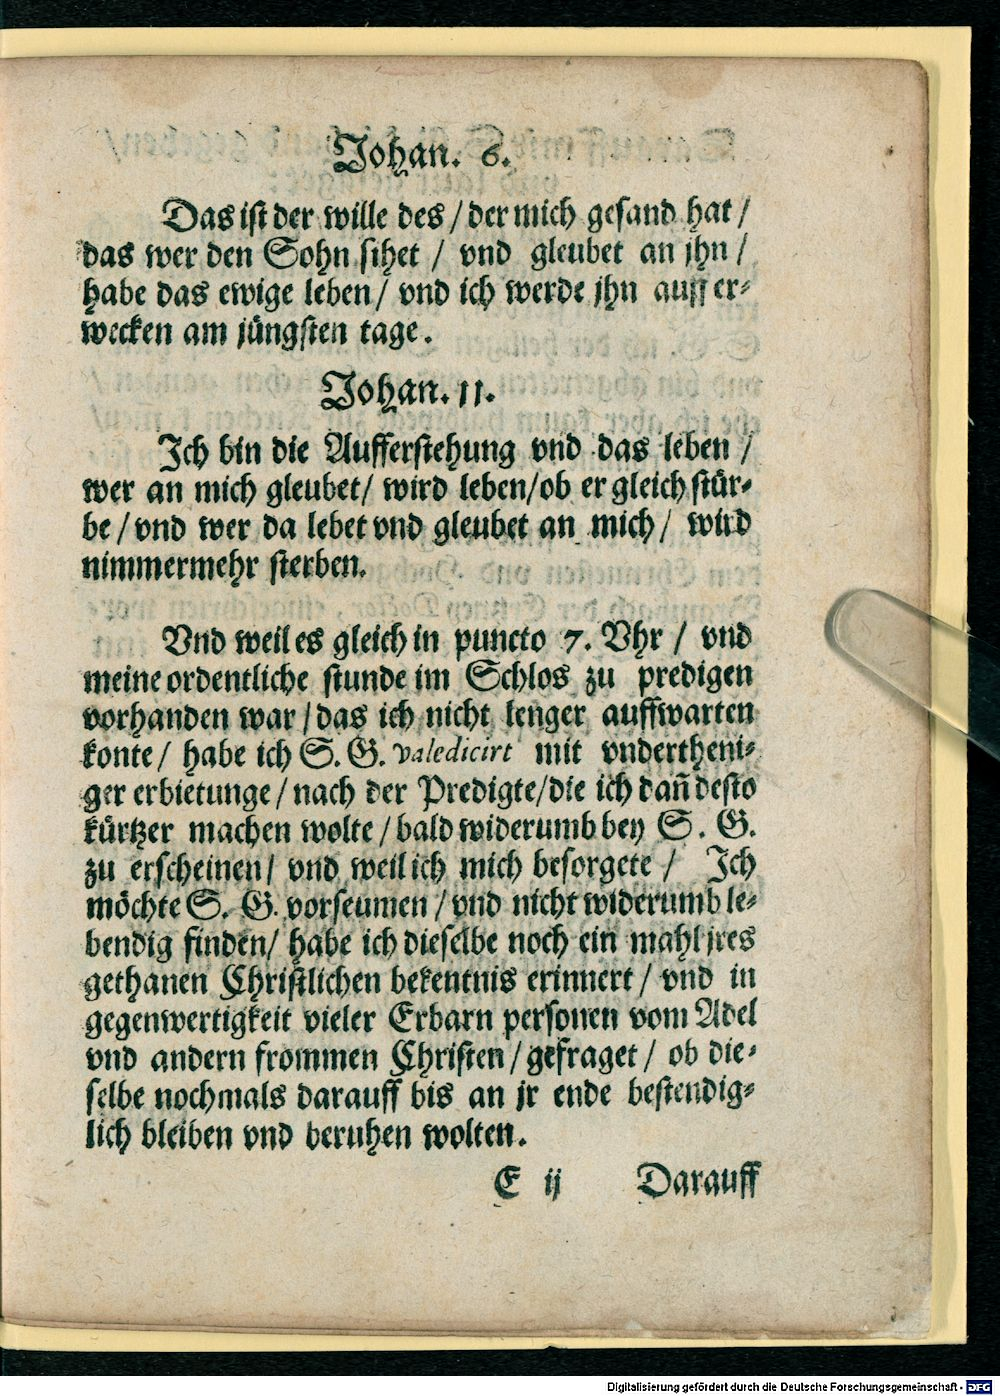 Johan. 6.
Das ist der wille des / der mich gesand hat /
das wer den Sohn sihet / vnd gleubet an jhn /
habe das ewige leben / vnd ich werde jhn auff er-
wecken am jüngsten tage.
Johan. 11.
Ich bin die Aufferstehung vnd das leben /
wer an mich gleubet / wird leben / ob er gleich stür-
be / vnd wer da lebet vnd gleubet an mich / wird
nimmermehr sterben.
Vnd weil es gleich in puncto 7. Vhr / vnd
meine ordentliche stunde im Schlos zu predigen
vorhanden war / das ich nicht lenger auffwarten
konte / habe ich S. G. valedicirt mit vndertheni-
ger erbietunge / nach der Predigte / die ich dañ desto
kürtzer machen wolte / bald widerumb bey S. G.
zu erscheinen / vnd weil ich mich besorgete / Ich
möchte S. G. vorseumen / vnd nicht widerumb le-
bendig finden / habe ich dieselbe noch ein mahl jres
gethanen Christlichen bekentnis erinnert / vnd in
gegenwertigkeit vieler Erbarn personen vom Adel
vnd andern frommen Christen / gefraget / ob die-
selbe nochmals darauff bis an jr ende bestendig-
lich bleiben vnd beruhen wolten.
E ij Darauff
Digitalisierung gefördert durch die Deutsche Forschungsgemeinschaft - DFG